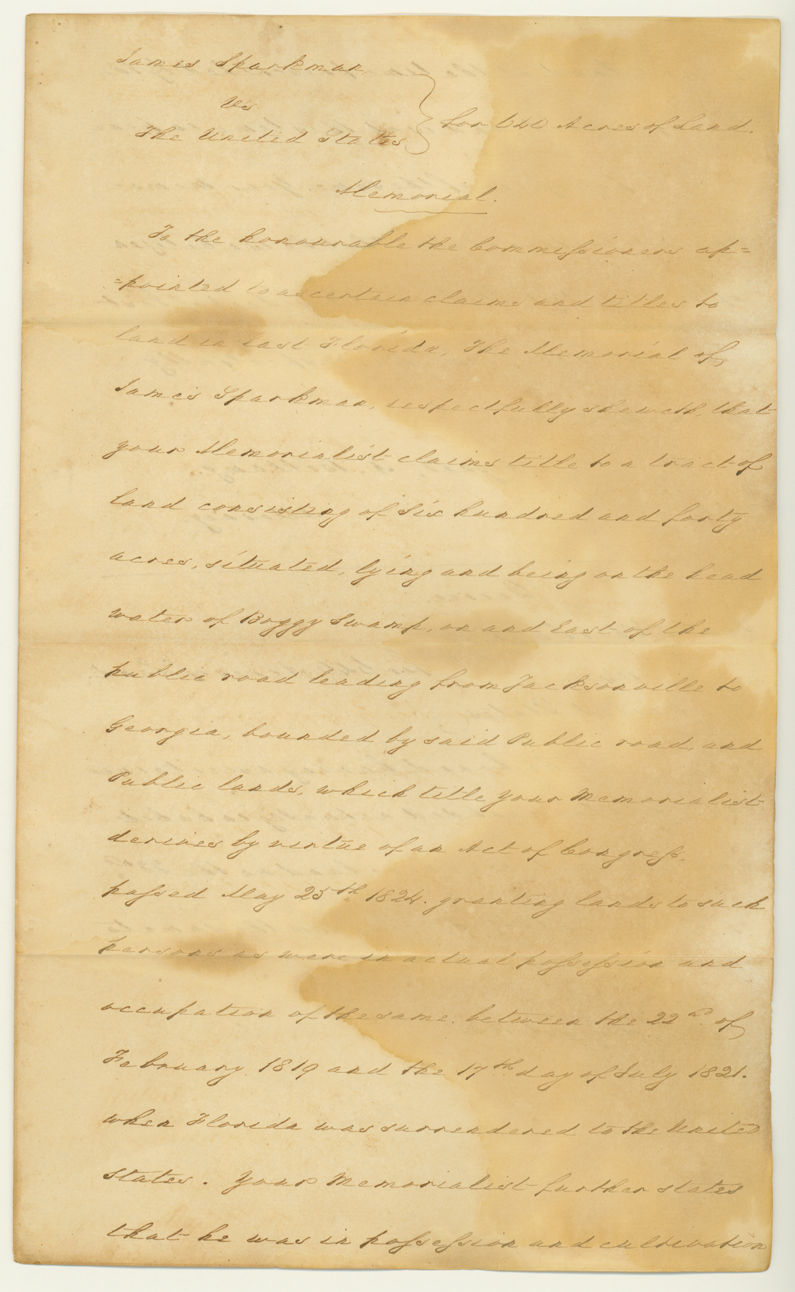 James Sparkman
vs
The United States } for 640 Acres of Land.
Memorial.
To the honourable the Commissioners ap=
=pointed to ascertain claims and titles to
land in East Florida, The Memorial of
James Sparkman, respectfully sheweth, that
your Memorialist claims title to a tract of
Land consisting of Six hundred and forty
acres, situated, lying and being on the head
water of Boggy Swamp, on and East of, the
public road leading from Jacksonville to
Georgia, bounded by said Public road, and
Public lands, which title your Memorialist
derives by virtue of an Act of Congress,
passed May 25th 1824. granting lands to such
persons as were in actual possession and
occupation of the same, between the 22nd. of
February 1819 and the 17th day of July 1821.
when Florida was surrendered to the United
States. Your Memorialist further states
that he was in possession and cultivation